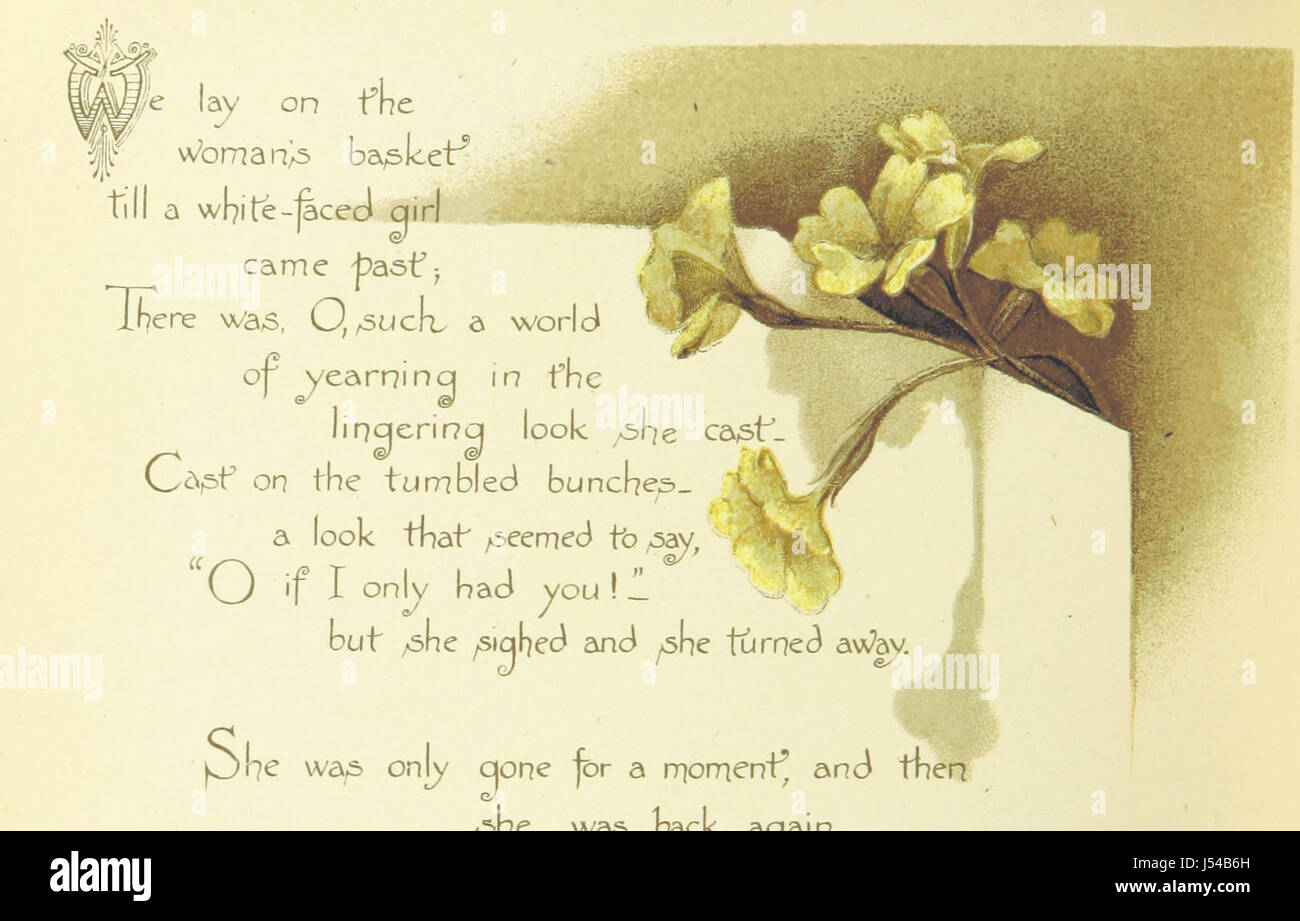 We lay on the
woman's basket
till a white-faced girl
came past;
There was, O, such a world
of yearning in the
lingering look she cast—
Cast on the tumbled bunches—
a look that seemed to say,
"O if I only had you!"—
but she sighed and she turned away.
She was only gone for a moment, and then
she was back again
alamy
a
a
a
alamy
alamy
alamy
a
a
alamy
alamy
Image ID: J54B6H
www.alamy.com